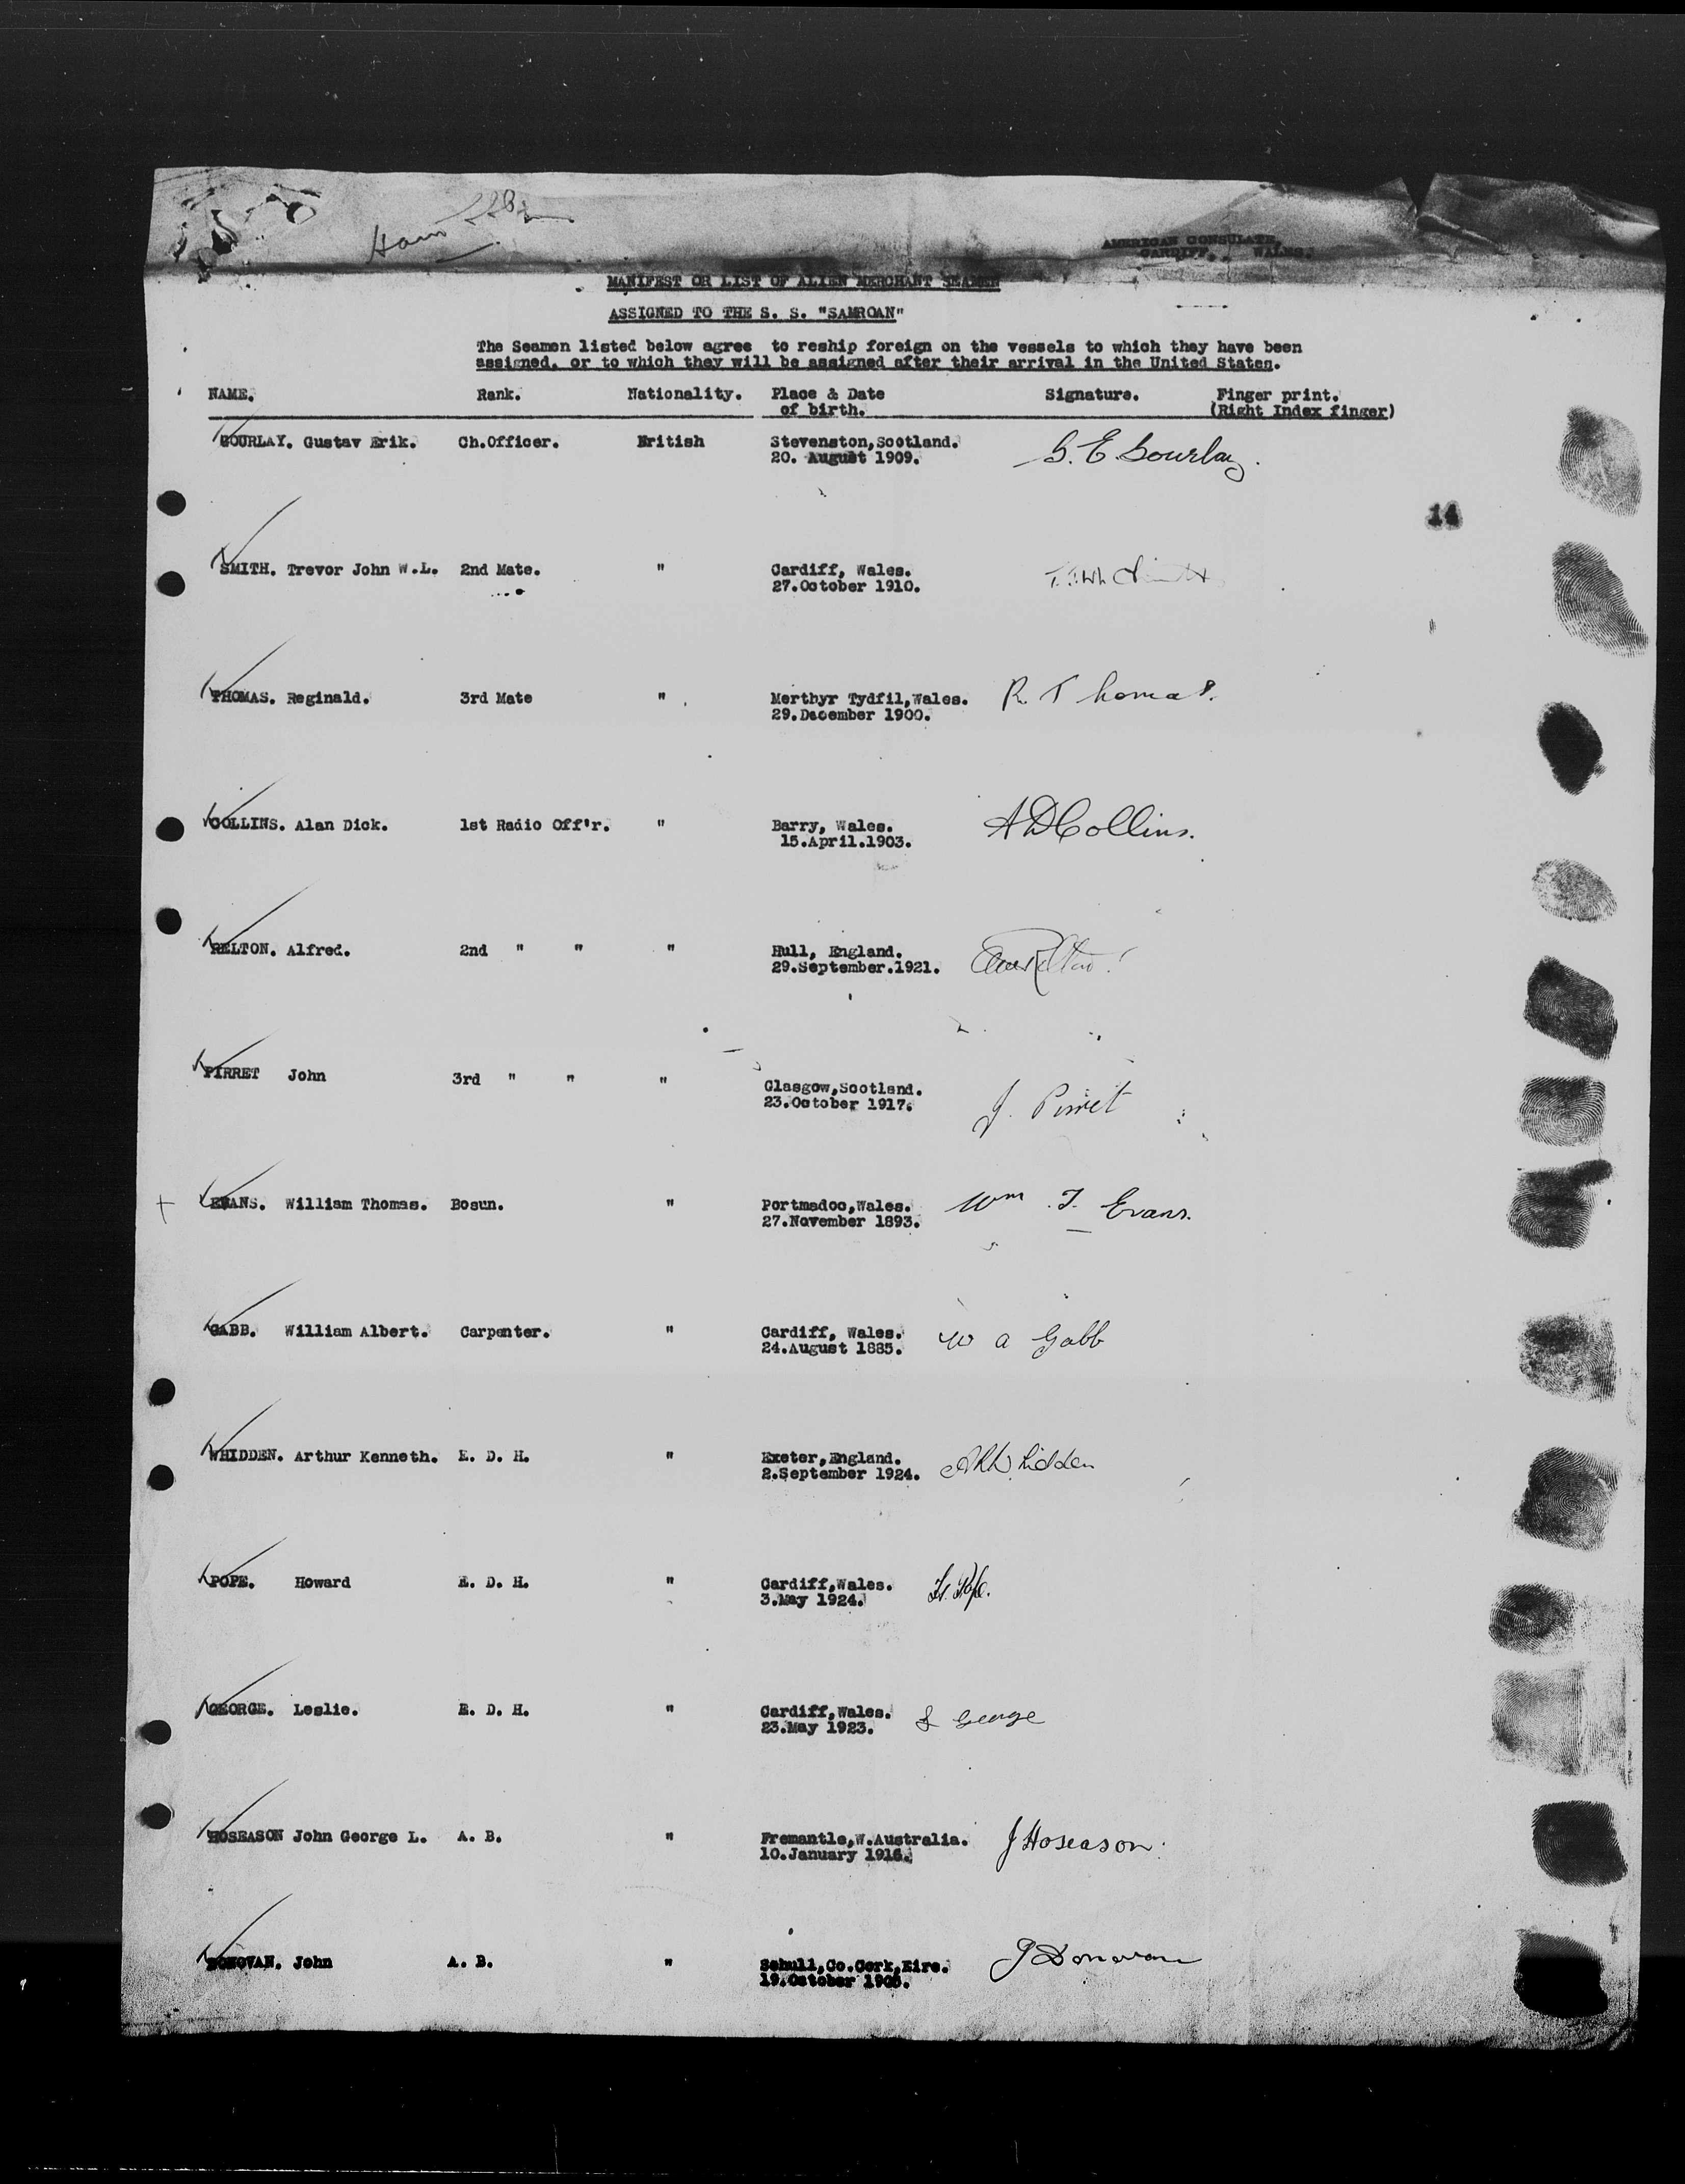 AMERICAN CONSULATE,
CARDIFF, WALES.
MANIFEST OR LIST OF ALIEN MERCHANT SEAMEN
ASSIGNED TO THE S. S. "SAMROAN"
The Seamen listed below agree to reship foreign on the vessels to which they have been
assigned, or to which they will be assigned after their arrival in the United States.
NAME. Rank. Nationality. Place & Date Signature. Finger print.
of birth. (Right Index finger)
GOURLAY. Gustav Erik. Ch.Officer. British Stevenston,Scotland. G. E Gourlay.
20. August 1909.
14
SMITH. Trevor John W.L. 2nd Mate. " Cardiff, Wales.
27.October 1910.
THOMAS. Reginald. 3rd Mate " Merthyr Tydfil,Wales. R Thomas.
29.December 1900.
COLLINS. Alan Dick. 1st Radio Off'r. " Barry, Wales. A D Collins.
15.April.1903.
RELTON. Alfred. 2nd " " " Hull, England.
29.September.1921.
PIRRET John 3rd " " " Glasgow,Scotland. J. Pirret
23.October 1917.
EVANS. William Thomas. Bosun. " Portmadoc,Wales. Wm. T. Evans.
27.November 1893.
GABB. William Albert. Carpenter. " Cardiff, Wales. W a Gabb
24.August 1885.
WHIDDEN. Arthur Kenneth. E. D. H. " Exeter,England. A K Whidden
2.September 1924.
POPE. Howard E. D. H. " Cardiff,Wales. H. Pope.
3.May 1924.
GEORGE. Leslie. E. D. H. " Cardiff,Wales. L George
23.May 1923.
HOSEASON John George L. A. B. " Fremantle,W.Australia. J Hoseason.
10.January 1916.
DONOVAN. John A. B. " Schull,Co.Cork,Eire. J Donovan
19.October 1906.